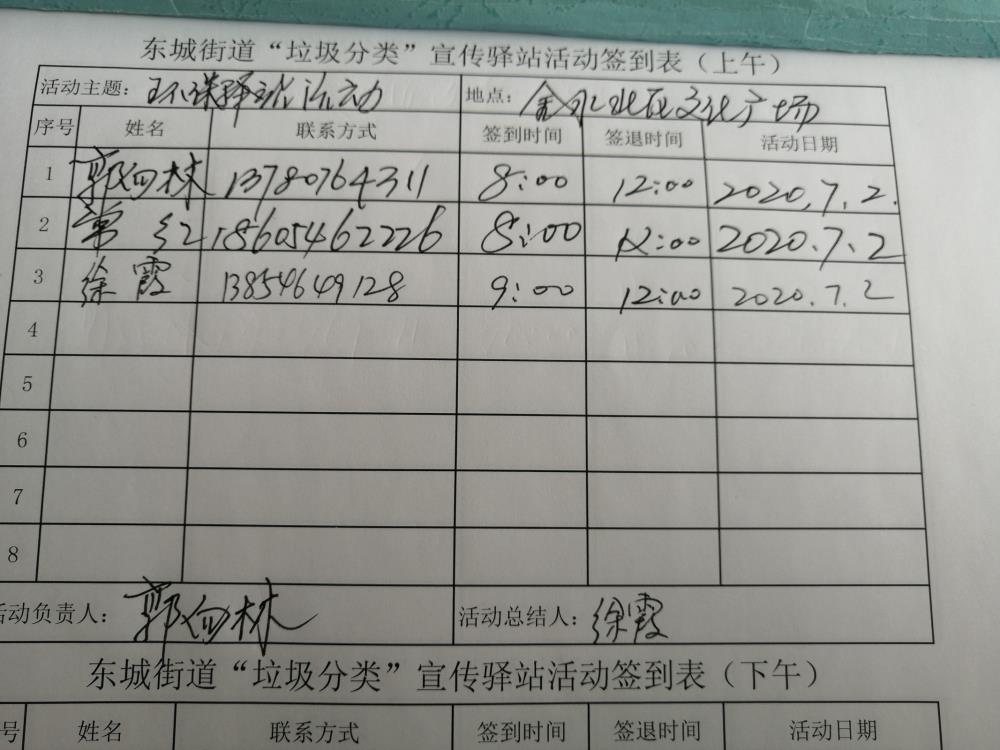 东城街道“垃圾分类”宣传驿站活动签到表（上午）
活动主题： 环保驿站活动 地点： 金水社区文化广场
序号 姓名 联系方式 签到时间 签退时间 活动日期
1 郭向林 13780764311 8:00 12:00 2020.7.2.
2 常红 18605462226 8:00 12:00 2020.7.2
3 徐霞 13854649128 9:00 12:00 2020.7.2
4
5
6
7
8
活动负责人： 郭向林 活动总结人： 徐霞
东城街道“垃圾分类”宣传驿站活动签到表（下午）
号 姓名 联系方式 签到时间 签退时间 活动日期